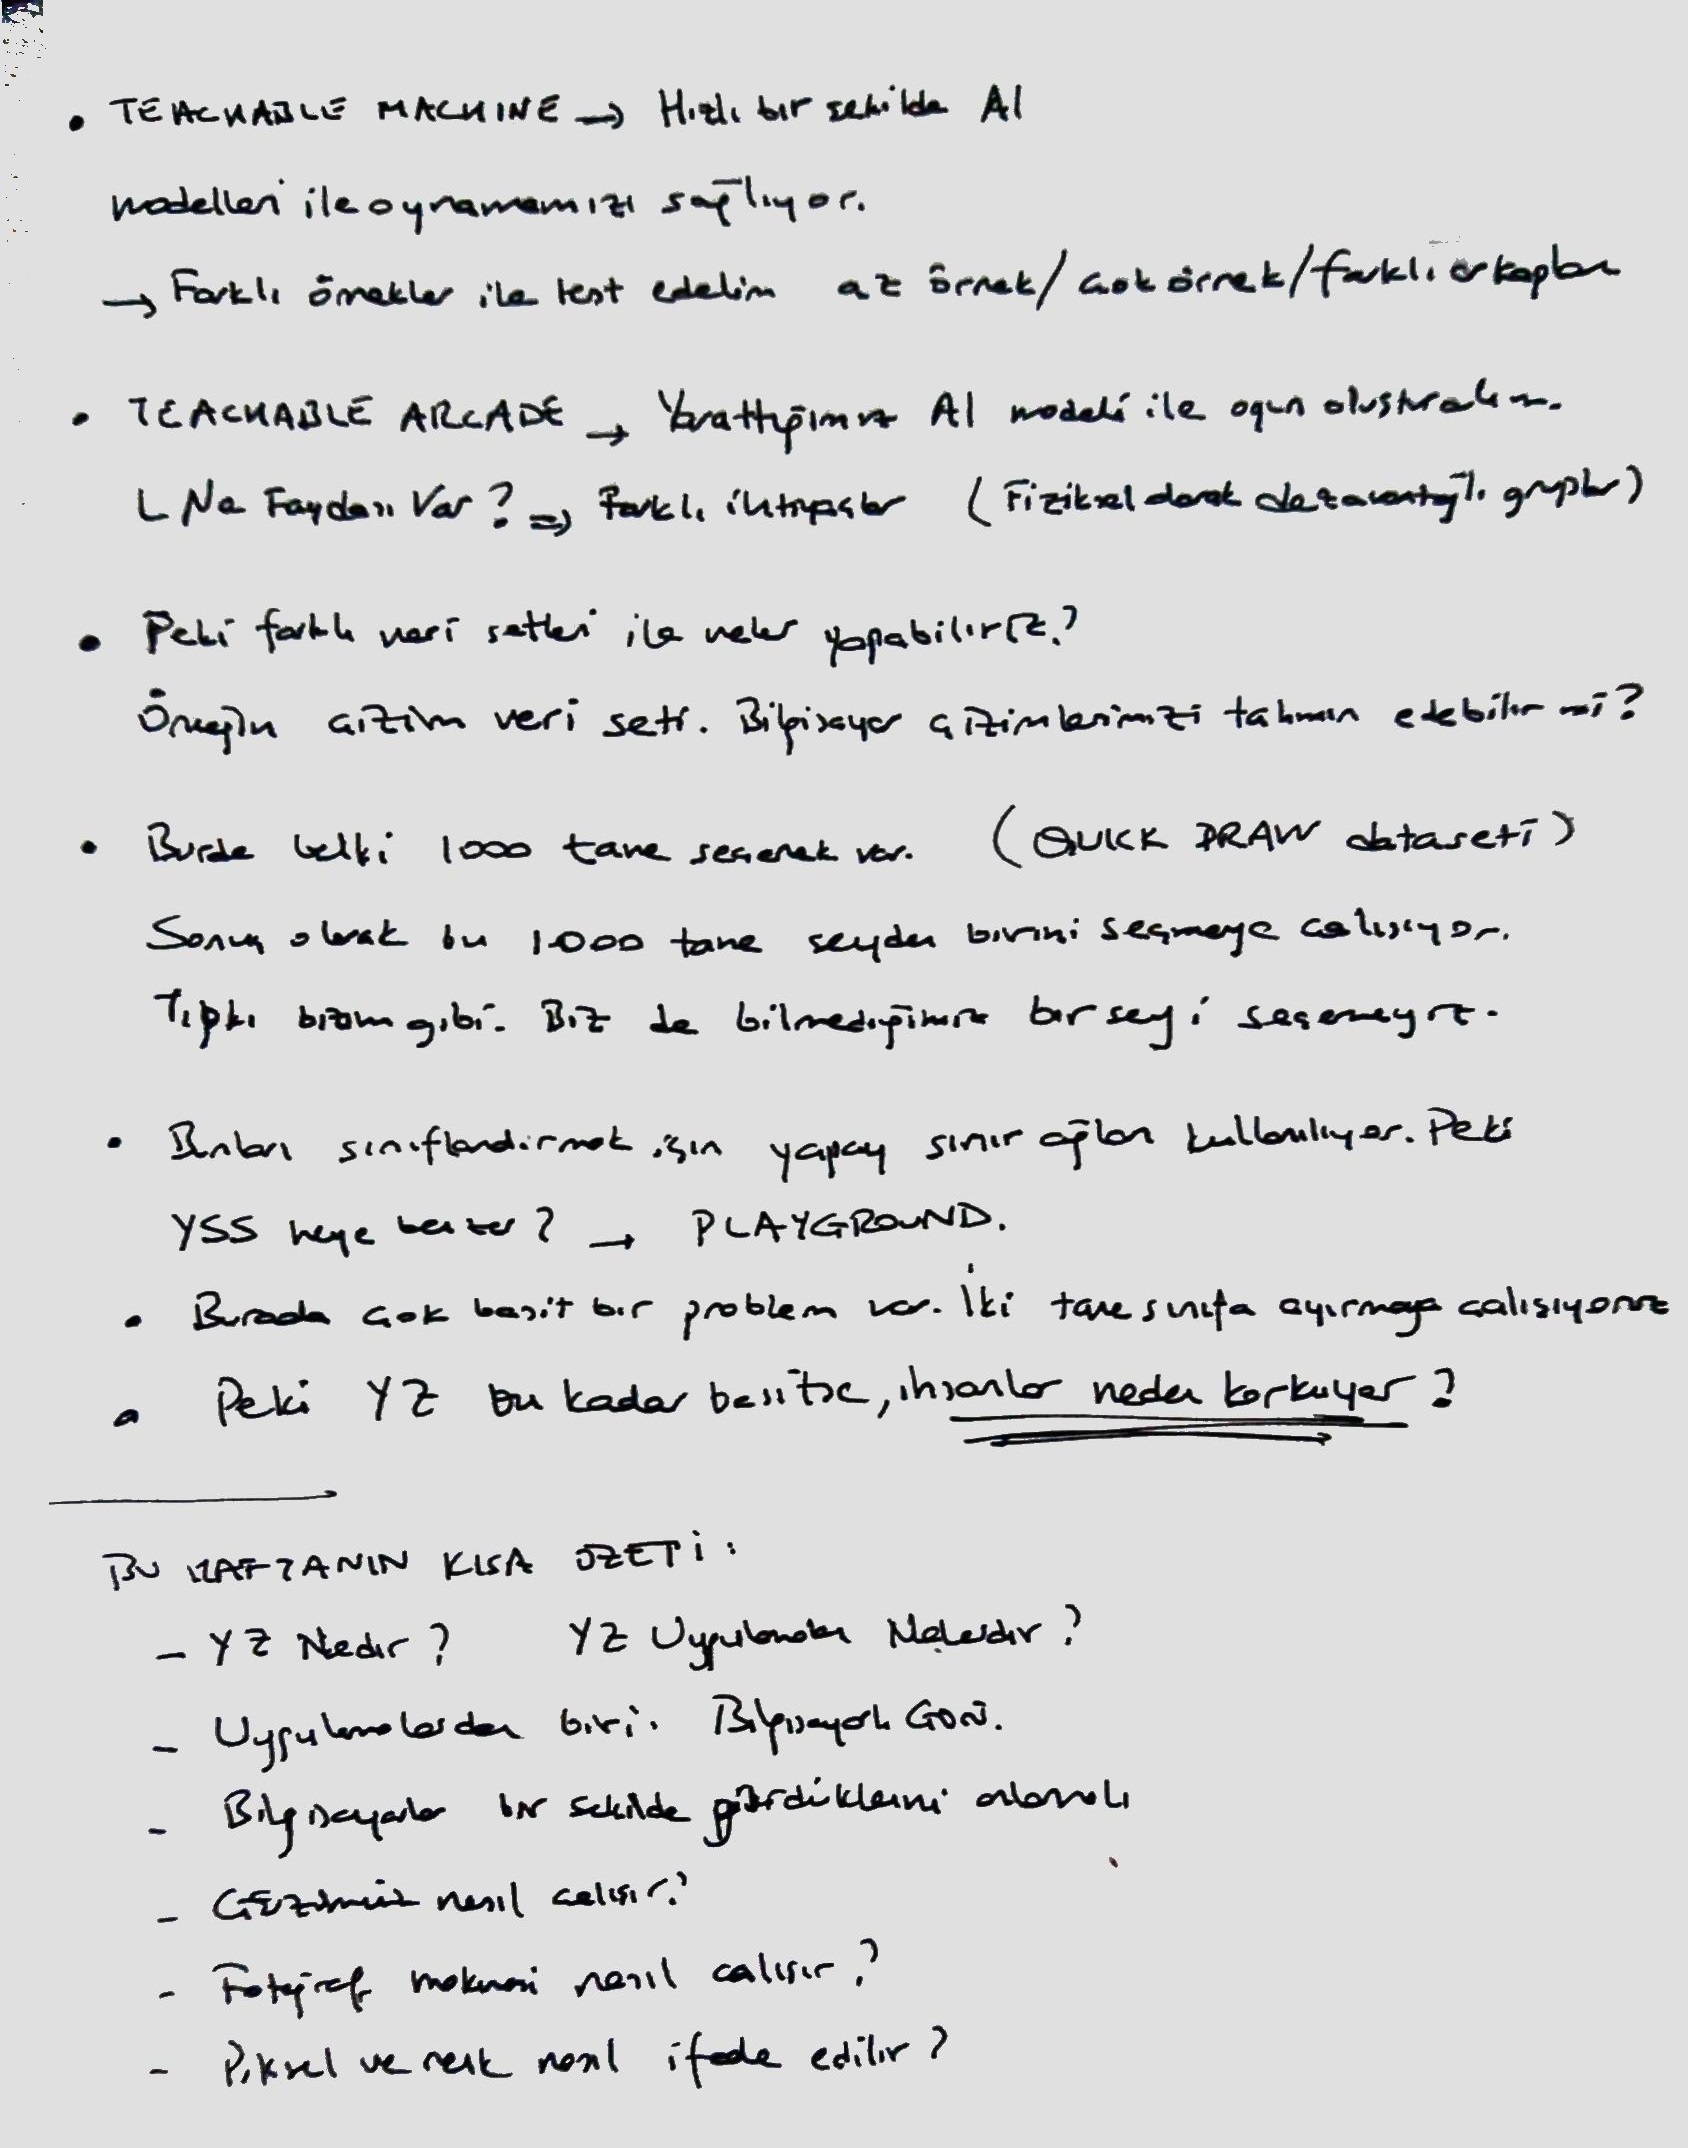 • TEACHABLE MACHINE → Hızlı bir şekilde AI
modelleri ile oynamamızı sağlıyor.
→ Farklı örnekler ile test edelim az örnek/çok örnek/farklı arkaplan
• TEACHABLE ARCADE → Yarattığımız AI modeli ile oyun oluşturalım.
L Ne Faydası Var? ⇒ Farklı ihtiyaçlar (Fiziksel olarak dezavantajlı gruplar)
• Peki farklı veri setleri ile neler yapabiliriz?
Örneğin çizim veri seti. Bilgisayar çizimlerimizi tahmin edebilir mi?
• Burda belki 1000 tane seçenek var. (QUICK DRAW dataseti)
Sonuç olarak bu 1000 tane şeyden birini seçmeye çalışıyor.
Tıpkı bizim gibi. Biz de bilmediğimiz bir şeyi seçemeyiz.
• Bunları sınıflandırmak için yapay sinir ağları kullanılıyor. Peki
YSS neye benzer? → PLAYGROUND.
• Burada çok basit bir problem var. İki tane sınıfa ayırmaya çalışıyoruz
• Peki YZ bu kadar basitse, insanlar neden korkuyor?
BU HAFTANIN KISA ÖZETİ:
- YZ Nedir? YZ Uygulamaları Nelerdir?
- Uygulamalardan biri: Bilgisayarlı Görü.
- Bilgisayarlar bir şekilde gördüklerini anlamalı
- Gözümüz nasıl çalışır?
- Fotoğraf makinesi nasıl çalışır?
- Piksel ve renk nasıl ifade edilir?